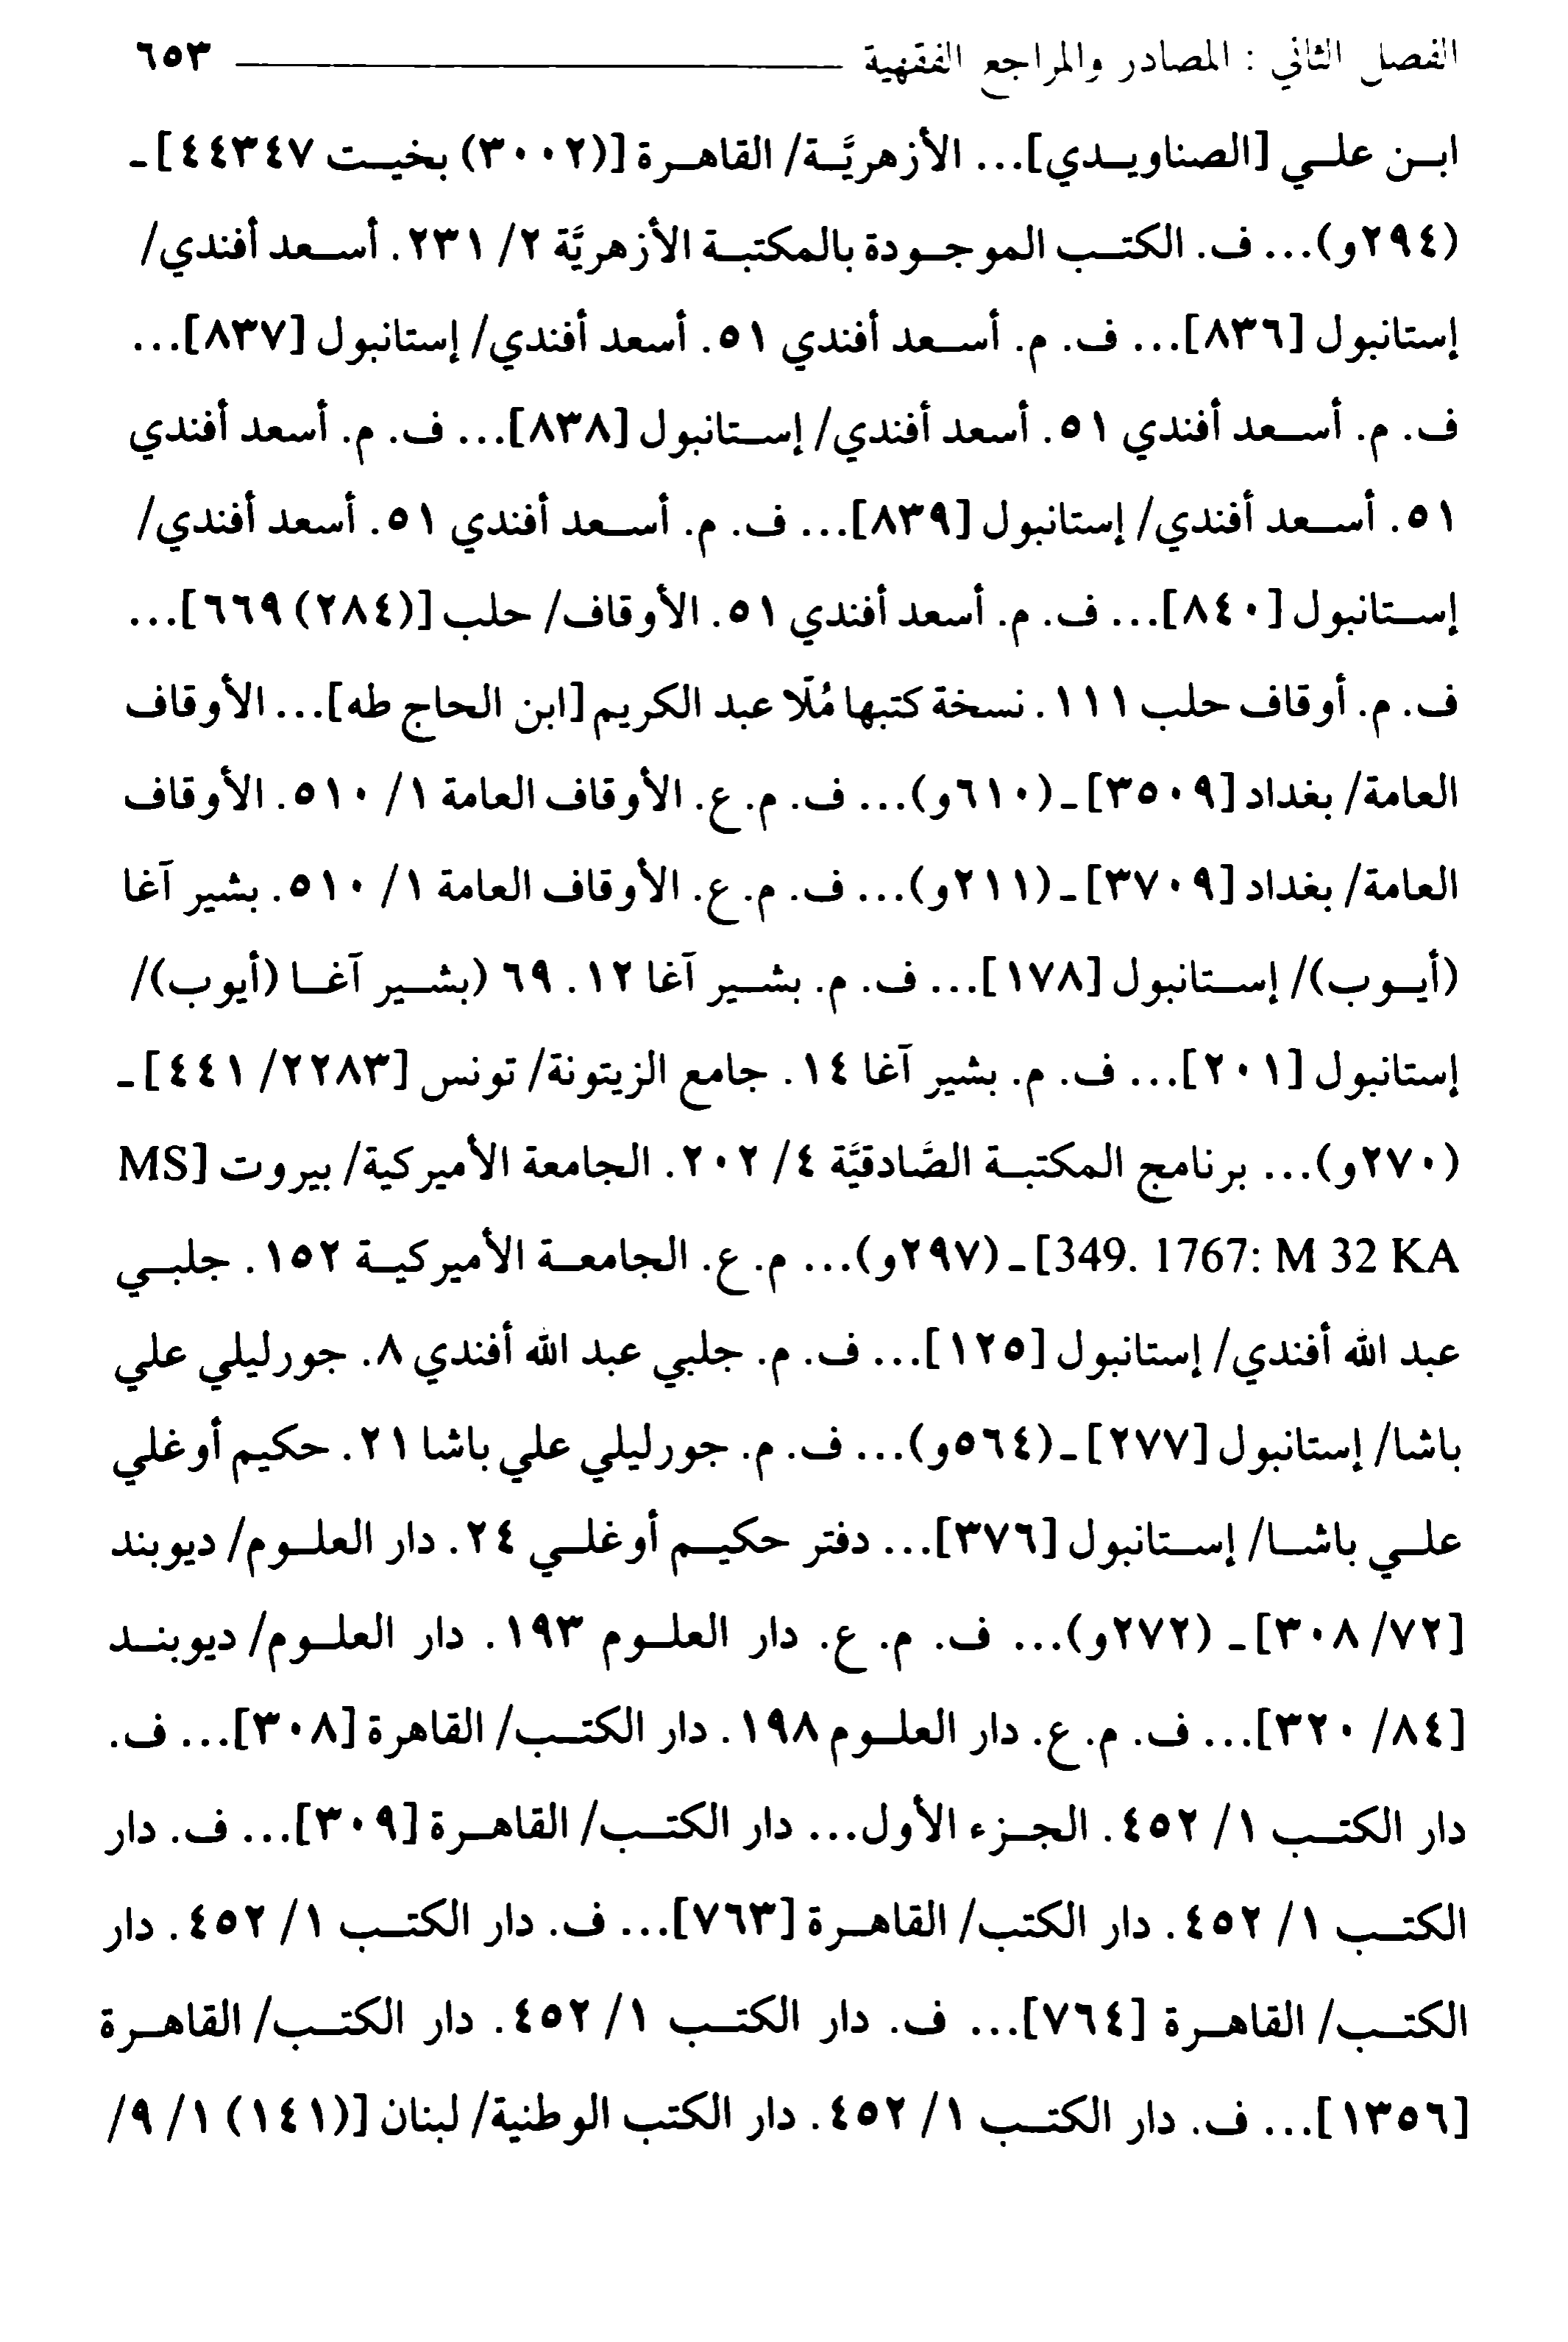 الفصل الثاني : المصادر والمراجع الفقهية ٦٥٣
ابن علي [الصناويدي]... الأزهريَّة/ القاهرة [(٣٠٠٢) بخيت ٤٤٣٤٧] ـ
(٢٩٤و)... ف. الكتب الموجودة بالمكتبة الأزهريَّة ٢/ ٢٣١. أسعد أفندي/
إستانبول [٨٣٦]... ف. م. أسعد أفندي ٥١. أسعد أفندي/ إستانبول [٨٣٧]...
ف. م. أسعد أفندي ٥١. أسعد أفندي/ إستانبول [٨٣٨]... ف. م. أسعد أفندي
٥١. أسعد أفندي/ إستانبول [٨٣٩]... ف. م. أسعد أفندي ٥١. أسعد أفندي/
إستانبول [٨٤٠]... ف. م. أسعد أفندي ٥١. الأوقاف/ حلب [(٢٨٤) ٦٦٩]...
ف. م. أوقاف حلب ١١١. نسخة كتبها مُلّا عبد الكريم [ابن الحاج طه]... الأوقاف
العامة/ بغداد [٣٥٠٩] ـ (٦١٠و)... ف. م.ع. الأوقاف العامة ١/ ٥١٠. الأوقاف
العامة/ بغداد [٣٧٠٩] ـ (٢١١و)... ف. م.ع. الأوقاف العامة ١/ ٥١٠. بشير آغا
(أيوب)/ إستانبول [١٧٨]... ف. م. بشير آغا ١٢. ٦٩ (بشير آغا (أيوب)/
إستانبول [٢٠١]... ف. م. بشير آغا ١٤. جامع الزيتونة/ تونس [٢٢٨٣/ ٤٤١] ـ
(٢٧٠و)... برنامج المكتبة الصَّادقيَّة ٤/ ٢٠٢. الجامعة الأميركية/ بيروت [MS
349. 1767: M 32 KA] ـ (٢٩٧و)... م.ع. الجامعة الأميركية ١٥٢. جلبي
عبد الله أفندي/ إستانبول [١٢٥]... ف. م. جلبي عبد الله أفندي ٨. جورليلي علي
باشا/ إستانبول [٢٧٧] ـ (٥٦٤و)... ف. م. جورليلي علي باشا ٢١. حكيم أوغلي
علي باشا/ إستانبول [٣٧٦]... دفتر حكيم أوغلي ٢٤. دار العلوم/ ديوبند
[٧٢/ ٣٠٨] ـ (٢٧٢و)... ف. م. ع. دار العلوم ١٩٣. دار العلوم/ ديوبند
[٨٤/ ٣٢٠]... ف. م.ع. دار العلوم ١٩٨. دار الكتب/ القاهرة [٣٠٨]... ف.
دار الكتب ١/ ٤٥٢. الجزء الأول... دار الكتب/ القاهرة [٣٠٩]... ف. دار
الكتب ١/ ٤٥٢. دار الكتب/ القاهرة [٧٦٣]... ف. دار الكتب ١/ ٤٥٢. دار
الكتب/ القاهرة [٧٦٤]... ف. دار الكتب ١/ ٤٥٢. دار الكتب/ القاهرة
[١٣٥٦]... ف. دار الكتب ١/ ٤٥٢. دار الكتب الوطنية/ لبنان [(١٤١) ١/ ٩/